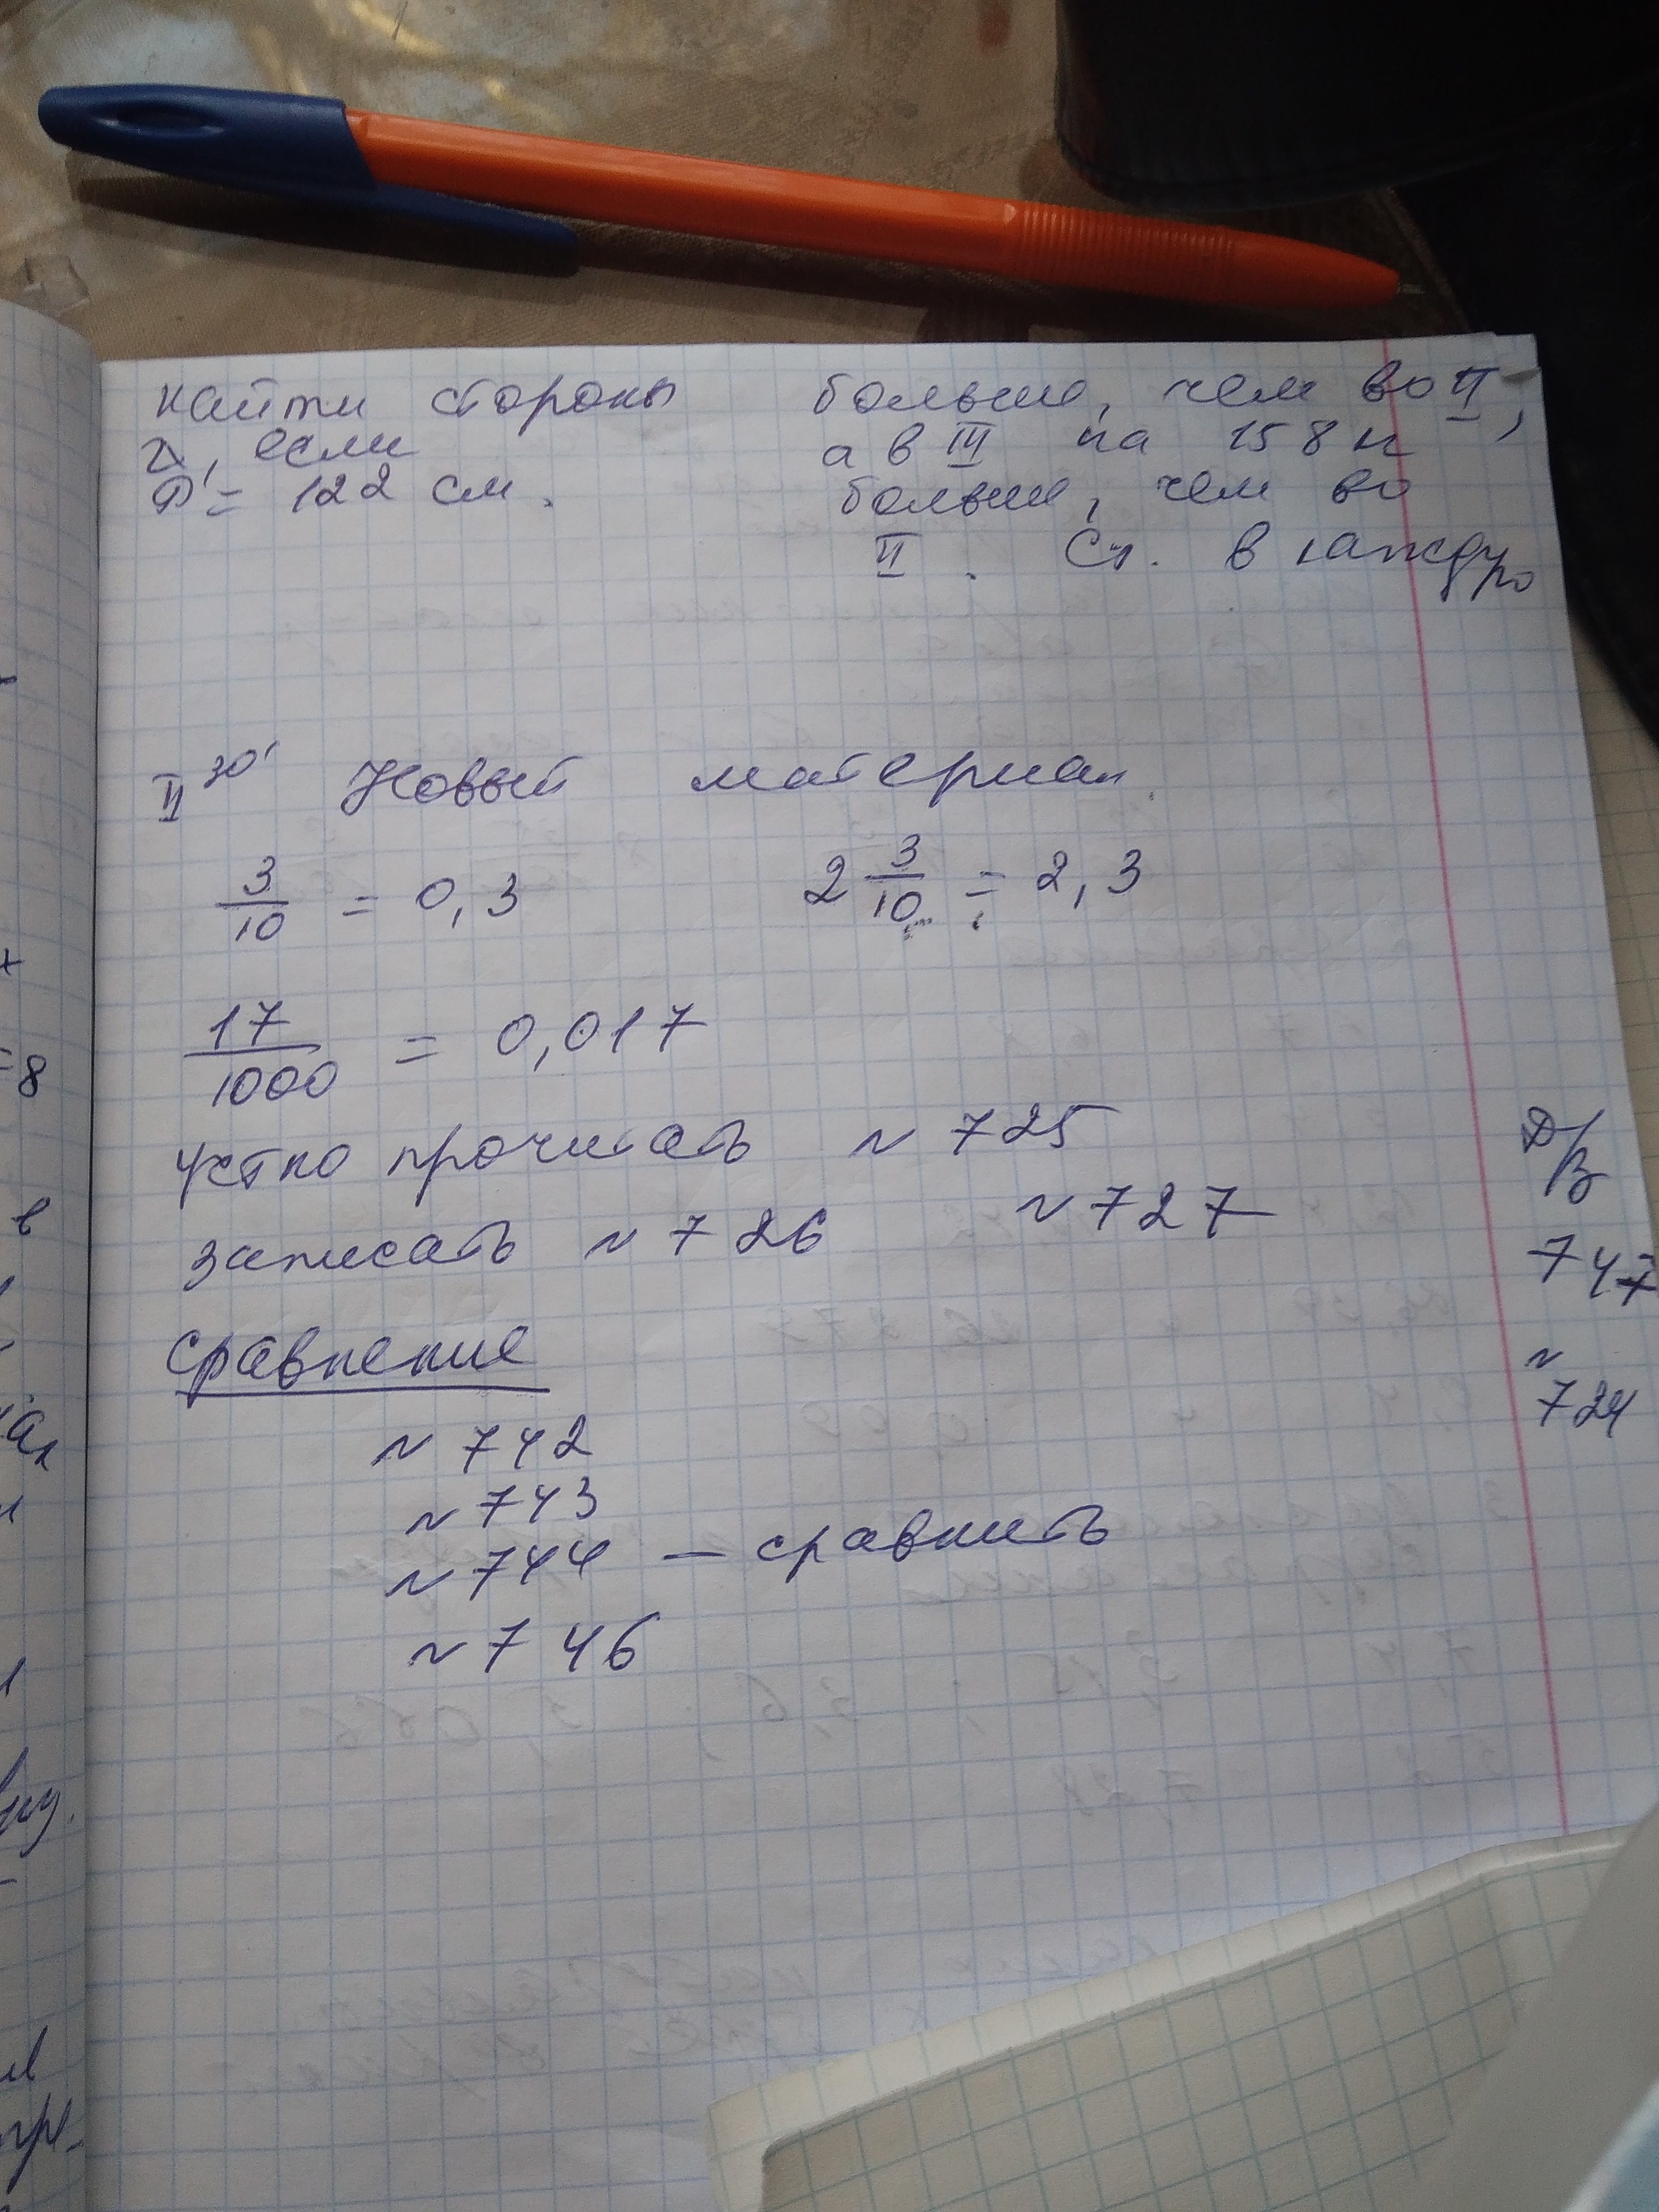 найти стороны
если
P = 122 см.
больше, чем во II,
а в III на 158 к
больше, чем во
II. Ск. в каждую
II 30' Новый материал.
3/10 = 0,3
2 3/10 = 2,3
17/1000 = 0,017
устно прочитать N 725
записать N 726 N 727
Сравнение
N 742
N 743
N 744 — сравнить
N 746
Д/З
747
N
724
=8
в